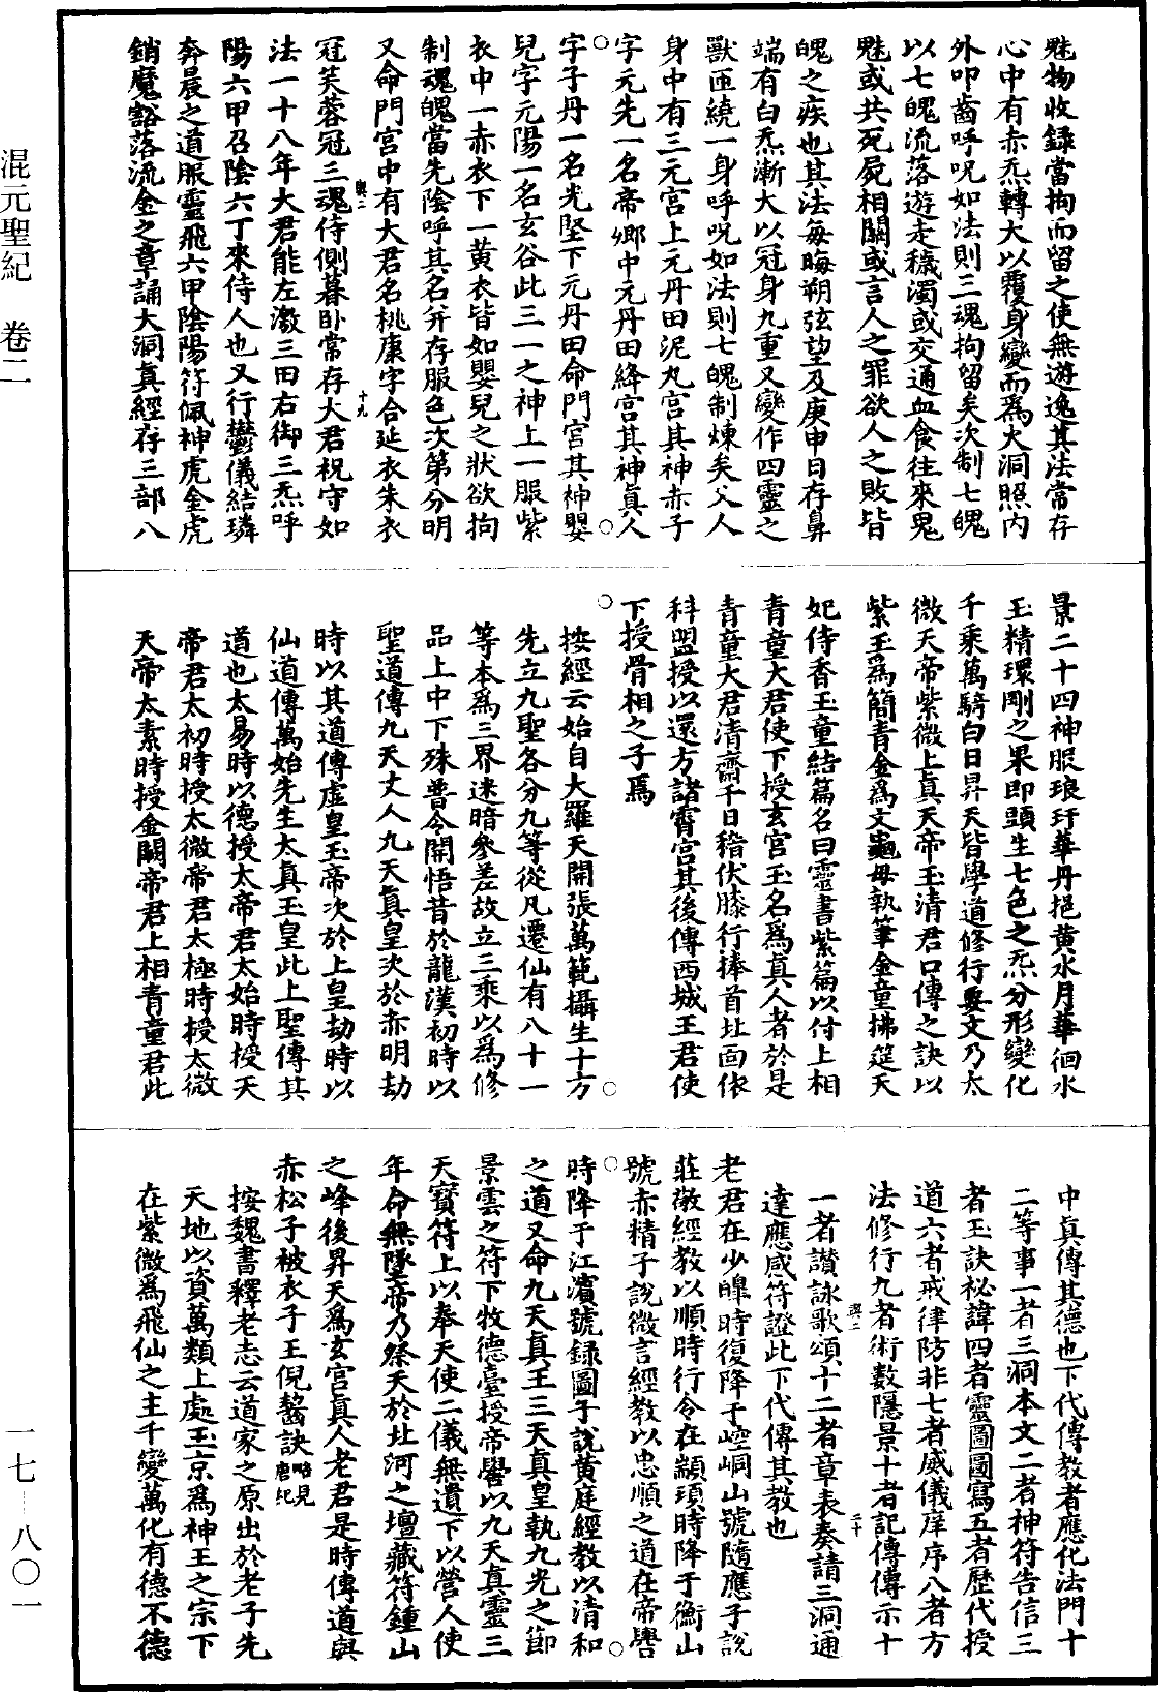 魅物收錄當拘而留之使無遊逸其法常存
心中有赤炁轉大以覆身變而爲大洞照內
外叩齒呼呪如法則三魂拘留矣次制七魄
以七魄流落遊走穢濁或交通血食往來鬼
魅或共死屍相關或言人之罪欲人之敗皆
魄之疾也其法每晦朔弦望及庚申日存鼻
端有白炁漸大以冠身九重又變作四靈之
獸匝繞一身呼呪如法則七魄制煉矣父人
身中有三元宮上元丹田泥丸宮其神赤子
字元先一名帝卿中元丹田絳宮其神真人
字子丹一名光堅下元丹田命門宮其神嬰
兒字元陽一名玄谷此三一之神上一服紫
衣中一赤衣下一黄衣皆如嬰兒之狀欲拘
制魂魄當先陰呼其名并存服色次第分明
又命門宮中有大君名桃康字合延衣朱衣
十九
冠芙蓉冠三魂侍側暮卧常存大君祝守如
與二
法一十八年大君能左激三田右御三炁呼
陽六甲召陰六丁來侍人也又行鬱儀結璘
奔晨之道服靈飛六甲陰陽符佩神虎金虎
銷魔豁落流金之章誦大洞真經存三部八
景二十四神服琅玕華丹挹黄水月華徊水
玉精環剛之果即頭生七色之炁分形變化
千乘萬騎白日昇天皆學道修行要文乃太
微天帝紫微上真天帝玉清君口傳之訣以
紫玉爲簡青金爲文龜母執筆金童拂筵天
妃侍香玉童結篇名曰靈書紫篇以付上相
青童大君使下授玄宮玉名爲真人者於是
青童大君清齋千日稽伏膝行捧首北面依
科盟授以還方諸霄宮其後傳西城王君使
下授骨相之子焉
按經云始自大羅天開張萬範攝生十方
先立九聖各分九等從凡遷仙有八十一
等本爲三界迷暗參差故立三乘以爲修
品上中下殊普令開悟昔於龍漢初時以
聖道傳九天丈人九天真皇次於赤明劫
時以其道傳虛皇玉帝次於上皇劫時以
仙道傳萬始先生大真玉皇此上聖傳其
道也太易時以德授太帝君太始時授天
帝君太初時授太微帝君太極時授太微
天帝太素時授金闕帝君上相青童君此
中真傳其德也下代傳教者應化法門十
二等事一者三洞本文二者神符告信三
者玉訣祕諱四者靈圖圖寫五者歷代授
道六者戒律防非七者威儀庠序八者方
法修行九者術數隱景十者記傳傳示十
一者讃詠歌頌十二者章表奏請三洞通
與二
二十
達應感符證此下代傳其教也
老君在少皥時復降于崆峒山號隨應子說
莊敬經教以順時行令在顓頊時降于衡山
號赤精子說微言經教以忠順之道在帝嚳
時降于江濱號錄圖子說黄庭經教以清和
之道又命九天真王三天真皇執九光之節
景雲之符下牧德臺授帝嚳以九天真靈三
天寳符上以奉天使二儀無遺下以營人使
年命無墜帝乃祭天於北河之壇藏符鍾山
之峰後昇天爲玄宮真人老君是時傳道與
赤松子被衣子王倪齧訣略見唐紀
按魏書釋老志云道家之原出於老子先
天地以資萬類上處玉京爲神王之宗下
在紫微爲飛仙之主千變萬化有德不德
混元聖紀　卷二
一七—八〇一